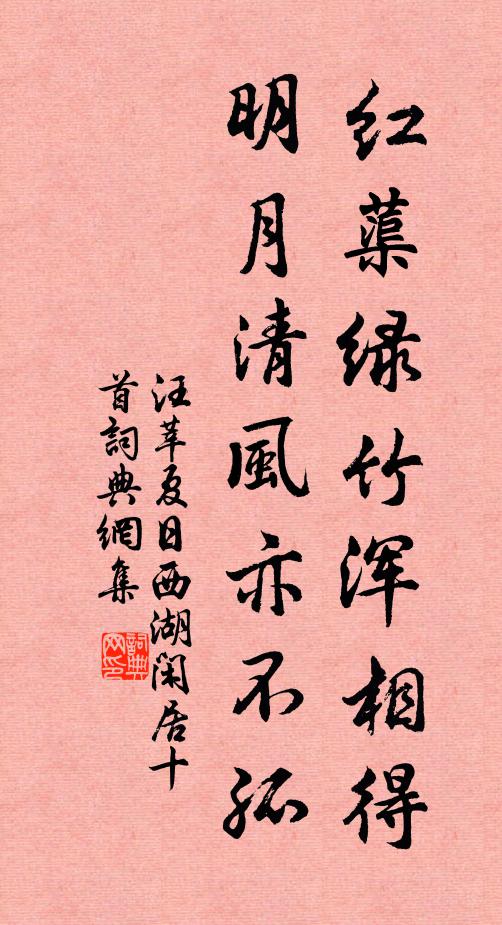 红蕖绿竹浑相得
明月清風亦不孤
汪莘夏日西湖闲居十
首詞典網集
詞典
网印